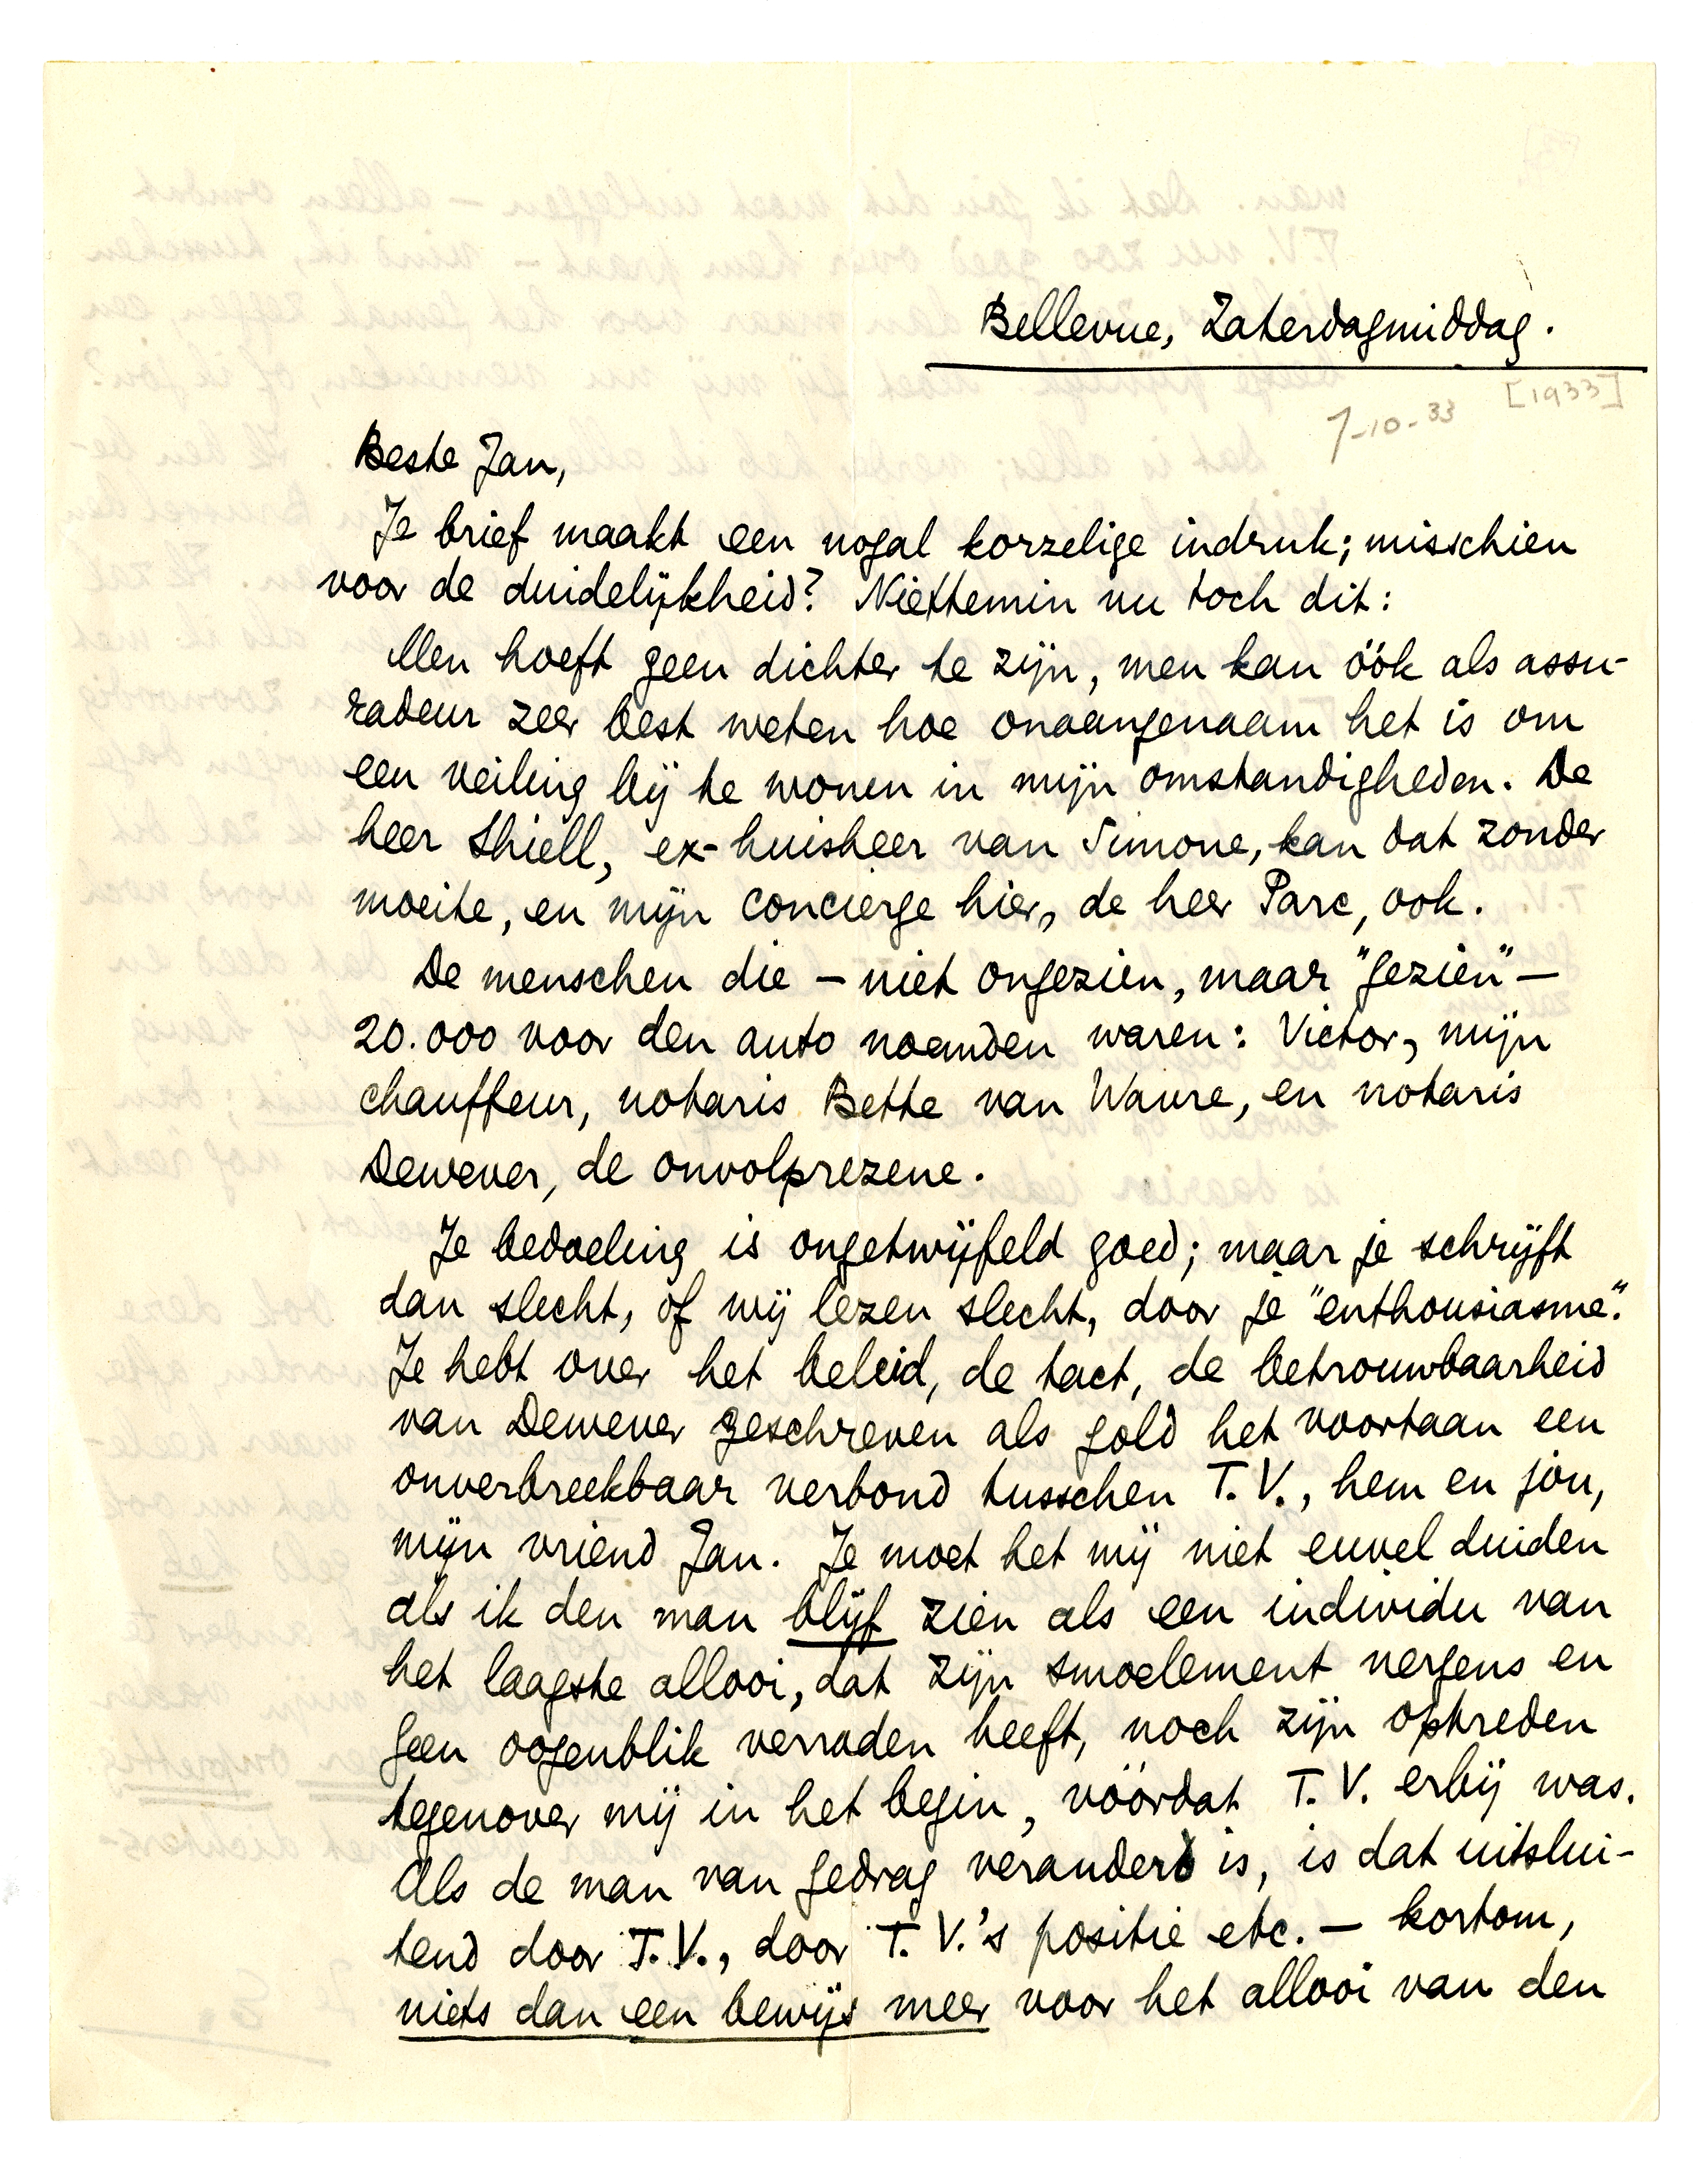 Bellevue, Zaterdagmiddag.
[1933]
7-10-33
Beste Jan,
Je brief maakt een nogal korzelige indruk; misschien
voor de duidelijkheid? Niettemin nu toch dit:
Men hoeft geen dichter te zijn, men kan óók als assu-
radeur zeer best weten hoe onaangenaam het is om
een veiling bij te wonen in mijn omstandigheden. De
heer Shiell, ex-huisheer van Simone, kan dat zonder
moeite, en mijn concierge hier, de heer Parc, ook.
De menschen die – niet ongezien, maar "gezien" –
20.000 voor den auto noemden waren: Victor, mijn
chauffeur, notaris Bette van Wavre, en notaris
Dewever, de onvolprezene.
Je bedoeling is ongetwijfeld goed; maar je schrijft
dan slecht, of wij lezen slecht, door je "enthousiasme".
Je hebt over het beleid, de tact, de betrouwbaarheid
van Dewever geschreven als gold het voortaan een
onverbreekbaar verbond tusschen T.V., hem en jou,
mijn vriend Jan. Je moet het mij niet euvel duiden
als ik den man blijf zien als een individu van
het laagste allooi, dat zijn smoelement nergens en
geen oogenblik verraden heeft, noch zijn optreden
tegenover mij in het begin, vóórdat T.V. erbij was.
Als de man van gedrag veranderd is, is dat uitslui-
tend door T.V., door T.V.'s positie etc. – kortom,
niets dan een bewijs meer voor het allooi van den